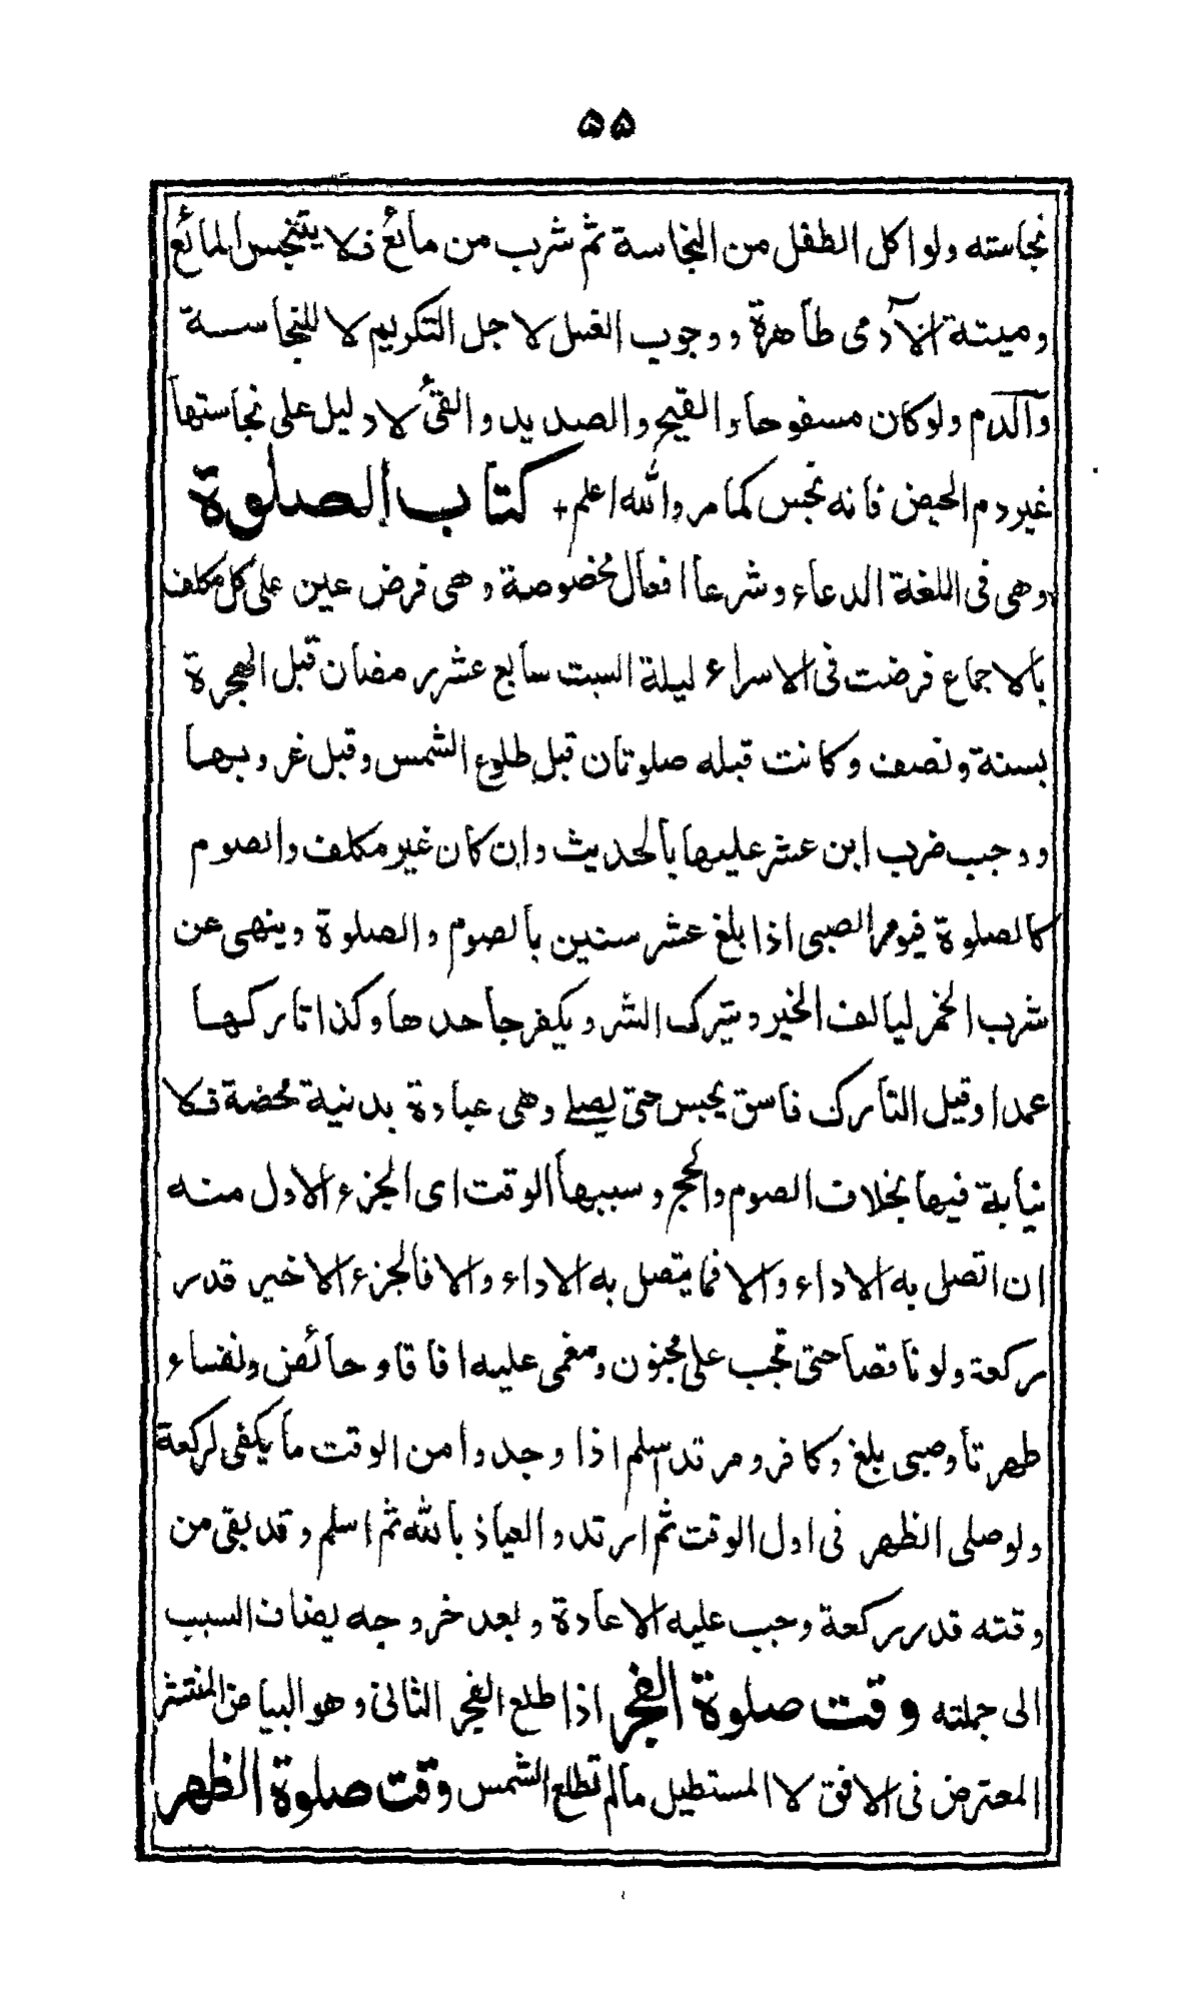 ۵۵
نجاسته ولو اكل الطفل من النجاسة ثم شرب من مائع فلا يتنجس المائع
وميتة الآدمى طاهرة ووجوب الغسل لاجل التكريم لا للنجاسة
والدم ولو كان مسفوحا والقيح والصديد والقئ لا دليل على نجاستها
غير دم الحيض فانه نجس كما مر والله اعلم + كتاب الصلوة
وهى فى اللغة الدعاء وشرعا افعال مخصوصة وهى فرض عين على كل مكلف
بالاجماع فرضت فى الاسراء ليلة السبت سابع عشر رمضان قبل الهجرة
بسنة ونصف وكانت قبله صلوتان قبل طلوع الشمس وقبل غروبها
ووجب ضرب ابن عشر عليها بالحديث وان كان غير مكلف والصوم
كالصلوة فيومر الصبى اذا بلغ عشر سنين بالصوم والصلوة وينهى عن
شرب الخمر ليالف الخير ويترك الشر ويكفر جاحدها وكذا تاركها
عمدا وقيل التارك فاسق يحبس حتى يصلے وهى عبادة بدنية محضة فلا
نيابة فيها بخلاف الصوم والحج وسببها الوقت اى الجزء الاول منه
ان اتصل به الاداء والا فما يتصل به الاداء والا فالجزء الاخير قدر
ركعة ولو ناقصا حتى تجب على مجنون ومغمى عليه افاقا وحائض ونفساء
طهرتا وصبى بلغ وكافر ومرتد اسلم اذا وجدوا من الوقت ما يكفى لركعة
ولو صلى الظهر فى اول الوقت ثم ارتد والعياذ بالله ثم اسلم وقد بقى من
وقته قدر ركعة وجب عليه الاعادة وبعد خروجه يضاف السبب
الى جملته وقت صلوة الفجر اذا طلع الفجر الثانى وهو البياض المنتشر
المعترض فى الافق لا المستطيل مالم تطلع الشمس وقت صلوة الظهر